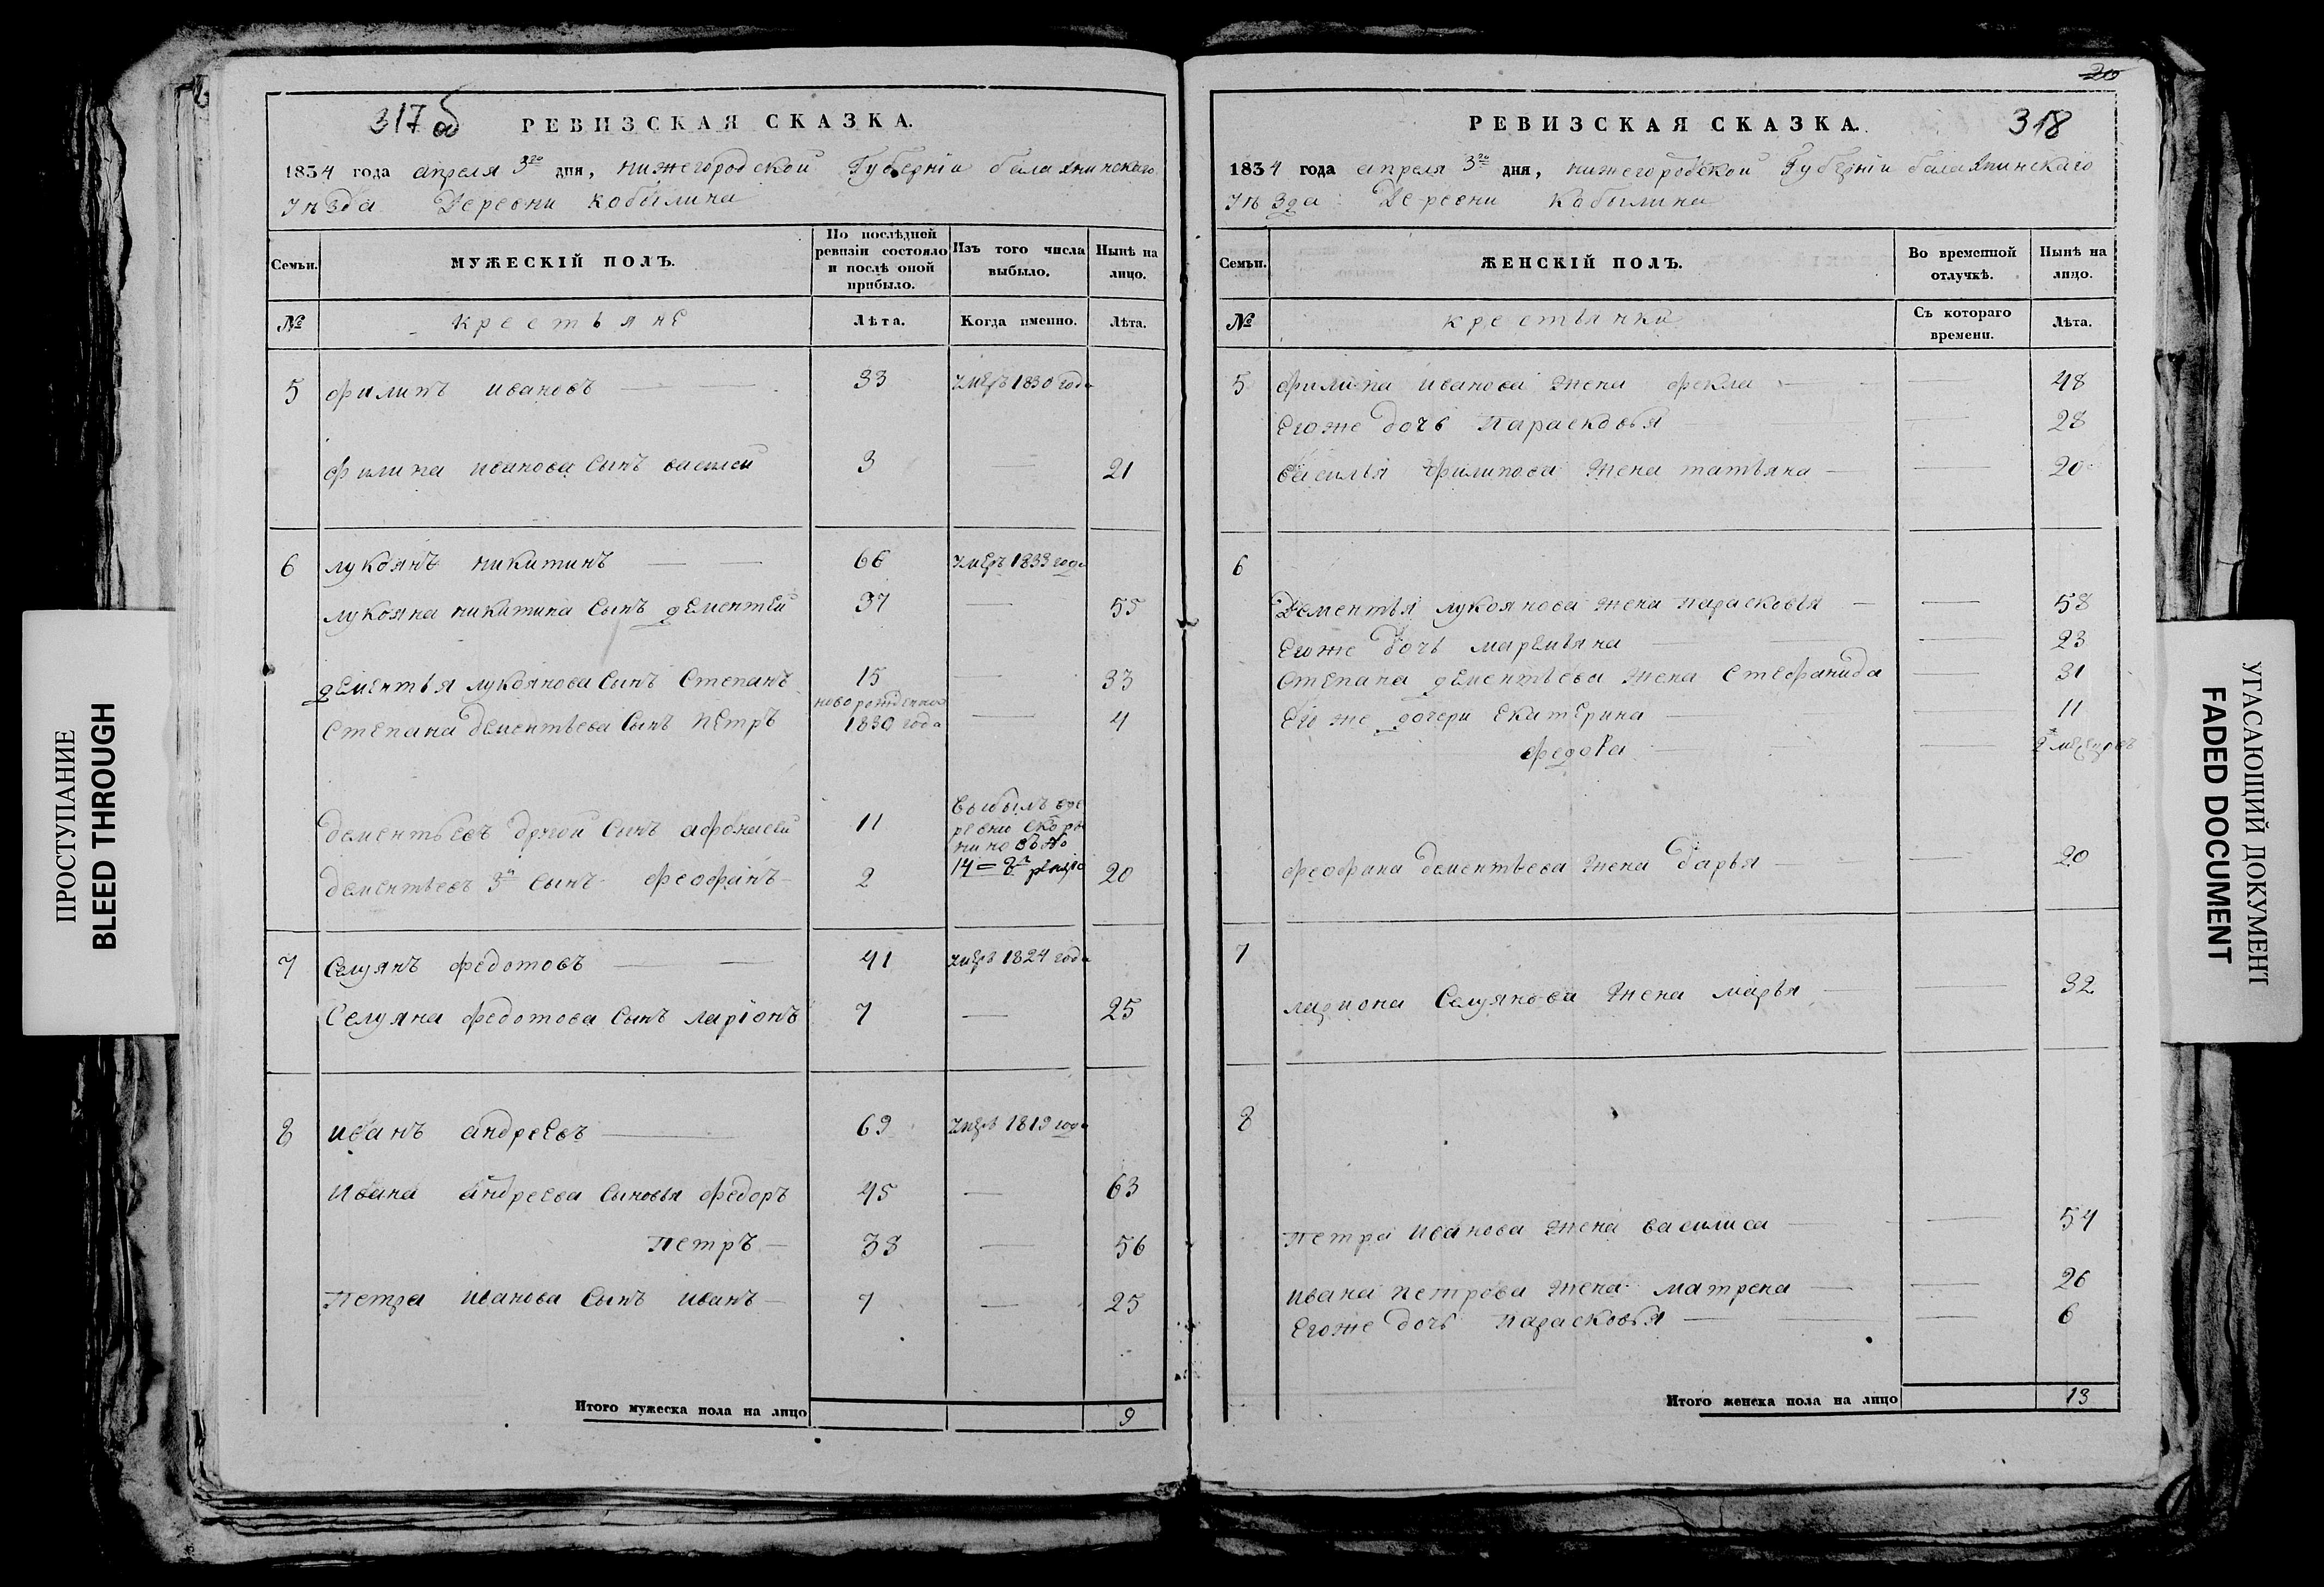 317 об РЕВИЗСКАЯ СКАЗКА.
1834 года апреля 3го дня, нижегородской Губерніи балахнинского
уѣзда Деревни кобылина
Семьи.
МУЖЕСКІЙ ПОЛЪ.
По послѣдней ревизіи состояло и послѣ оной прибыло.
Изъ того числа выбыло.
Нынѣ на лицо.
№ крестьяне Лѣта. Когда именно. Лѣта.
5 филипъ ивановъ 33 умеръ 1830 года
филипа иванова сынъ василей 3 21
6 лукоянъ никитинъ 66 умеръ 1833 года
лукояна никитина сынъ дементей 37 55
дементья лукоянова сынъ степанъ 15 33
новорожденной
степана дементьева сынъ петръ 1830 года 4
дементьевъ другой сынъ афонасей 11
выбылъ
дементьевъ 3й сынъ феофанъ 2 20
7 Селуянъ федотовъ 41 умеръ 1824 года
Селуяна федотова сынъ ларіонъ 7 25
8 иванъ андреевъ 69 умеръ 1819 года
ивана андреева сыновья федоръ 45 63
петръ 38 56
петра иванова сынъ иванъ 7 25
Итого мужеска пола на лицо 9
20
РЕВИЗСКАЯ СКАЗКА. 318
1834 года апреля 3го дня, нижегородской Губерніи балахнинскаго
уѣзда Деревни Кобылина
Семьи.
ЖЕНСКІЙ ПОЛЪ.
Во временной отлучкѣ.
Нынѣ на лицо.
№ крестьянки Съ котораго времени. Лѣта.
5 филипа иванова жена фекла 48
Егоже дочь Парасковья 28
василья филипова жена татьяна 20
6
Дементья лукоянова жена парасковья 58
Егоже дочь маремьяна 23
степана дементьева жена стефанида 31
Его же дочери екатерина 11
федора
феофана дементьева жена дарья 20
7
лариона Селуянова жена марья 32
8
петра иванова жена василиса 54
ивана петрова жена матрена 26
Егоже дочь парасковья 6
Итого женска пола на лицо 13
ПРОСТУПАНИЕ
BLEED THROUGH
УГАСАЮЩИЙ ДОКУМЕНТ
FADED DOCUMENT